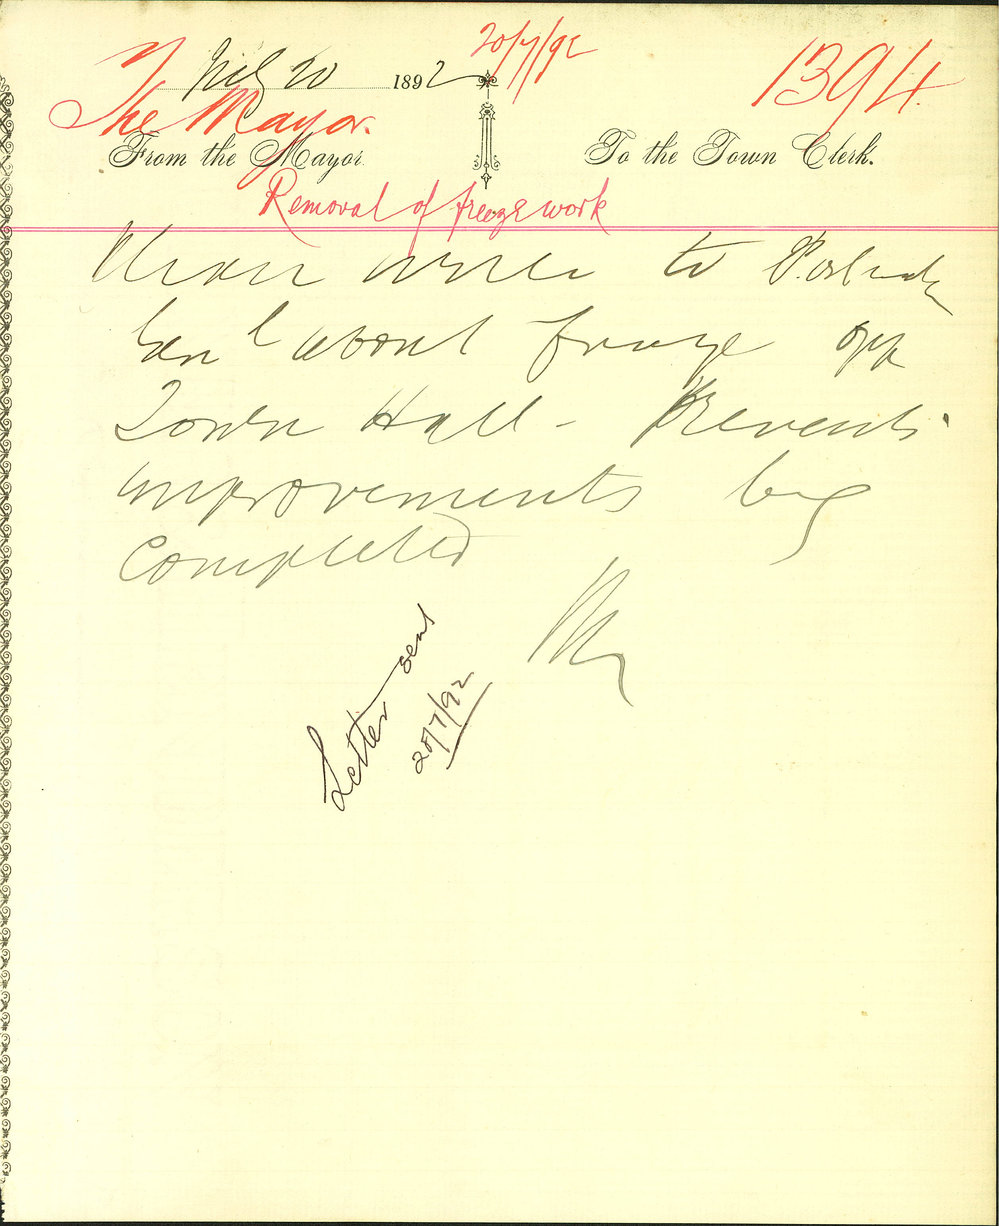 20/7/92
1394
July 20 1892
The Mayor.
From the Mayor
To the Town Clerk.
Removal of freeze work
Please write to Postmaster
Genl about frieze opp
Town Hall - Prevents
improvements being
completed
Letter sent
20/7/92